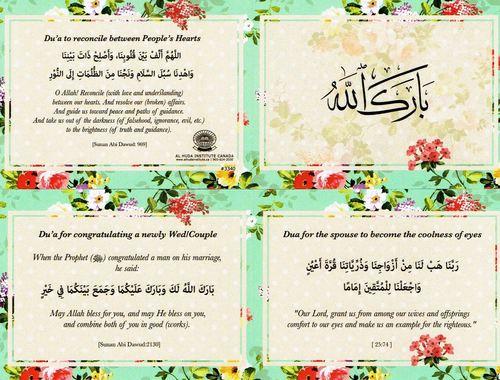 Du'a to reconcile between People's Hearts
اللَّهُمَّ أَلِّفْ بَيْنَ قُلُوبِنَا، وَأَصْلِحْ ذَاتَ بَيْنِنَا
وَاهْدِنَا سُبُلَ السَّلَامِ وَنَجِّنَا مِنَ الظُّلُمَاتِ إِلَى النُّوْرِ
O Allah! Reconcile (with love and understanding)
between our hearts. And resolve our (broken) affairs.
And guide us toward peace and paths of guidance.
And take us out of the darkness (of falsehood, ignorance, evil, etc.)
to the brightness (of truth and guidance).
[Sunan Abi Dawud: 969]
AL HUDA INSTITUTE CANADA
#3340
بَارَكَ اللّٰهُ
Du'a for congratulating a newly Wed/Couple
When the Prophet (ﷺ) congratulated a man on his marriage,
he said:
بَارَكَ اللَّهُ لَكَ وَبَارَكَ عَلَيْكُمَا وَجَمَعَ بَيْنَكُمَا فِي خَيْرٍ
May Allah bless for you, and may He bless on you,
and combine both of you in good (works).
[Sunan Abi Dawud:2130]
Dua for the spouse to become the coolness of eyes
رَبَّنَا هَبْ لَنَا مِنْ أَزْوَاجِنَا وَذُرِّيَّاتِنَا قُرَّةَ أَعْيُنٍ
وَاجْعَلْنَا لِلْمُتَّقِينَ إِمَامًا
"Our Lord, grant us from among our wives and offsprings
comfort to our eyes and make us an example for the righteous."
[ 25:74 ]